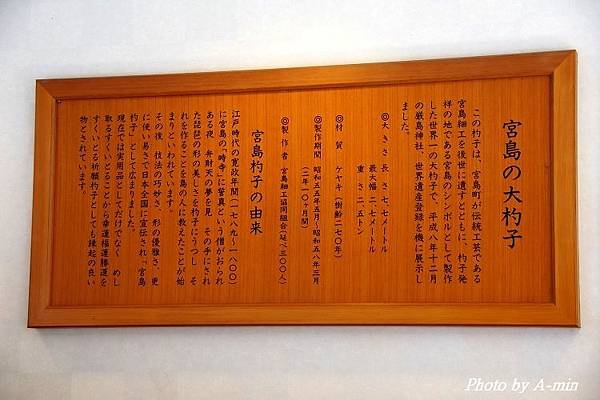 宮島の大杓子
この杓子は、宮島町が伝統工芸である
宮島細工を後世に遺すとともに、杓子発
祥の地である宮島のシンボルとして製作
した世界一の大杓子で、平成八年十二月
の厳島神社、世界遺産登録を機に展示し
ました。
◎大きさ 長さ 七.七メートル
最大幅 二.七メートル
重さ 二.五トン
◎材質 ケヤキ(樹齢二七〇年)
◎製作期間 昭和五五年五月〜昭和五八年三月
(二年一〇ヶ月間)
◎製作者 宮島細工協同組合(延べ三〇〇人)
宮島杓子の由来
江戸時代の寛政年間(一七八九〜一八〇〇)
に宮島の「時寺」に誓真という僧がおられ
ある夜、弁財天の夢を見、その手にされ
た琵琶の形の美しい線を杓子にうつし、そ
れを作ることを島の人に教えたことが始
まりといわれています。
その後、技法の巧妙さ、形の優雅さ、更
に使い易さで日本全国に宣伝され「宮島
杓子」として広まりました。
現在では実用品としてだけでなく、めし
取る、すくいとることから幸運、福運、勝運を
すくいとる祈願杓子としても縁起の良い
物とされています。
Photo by A-min